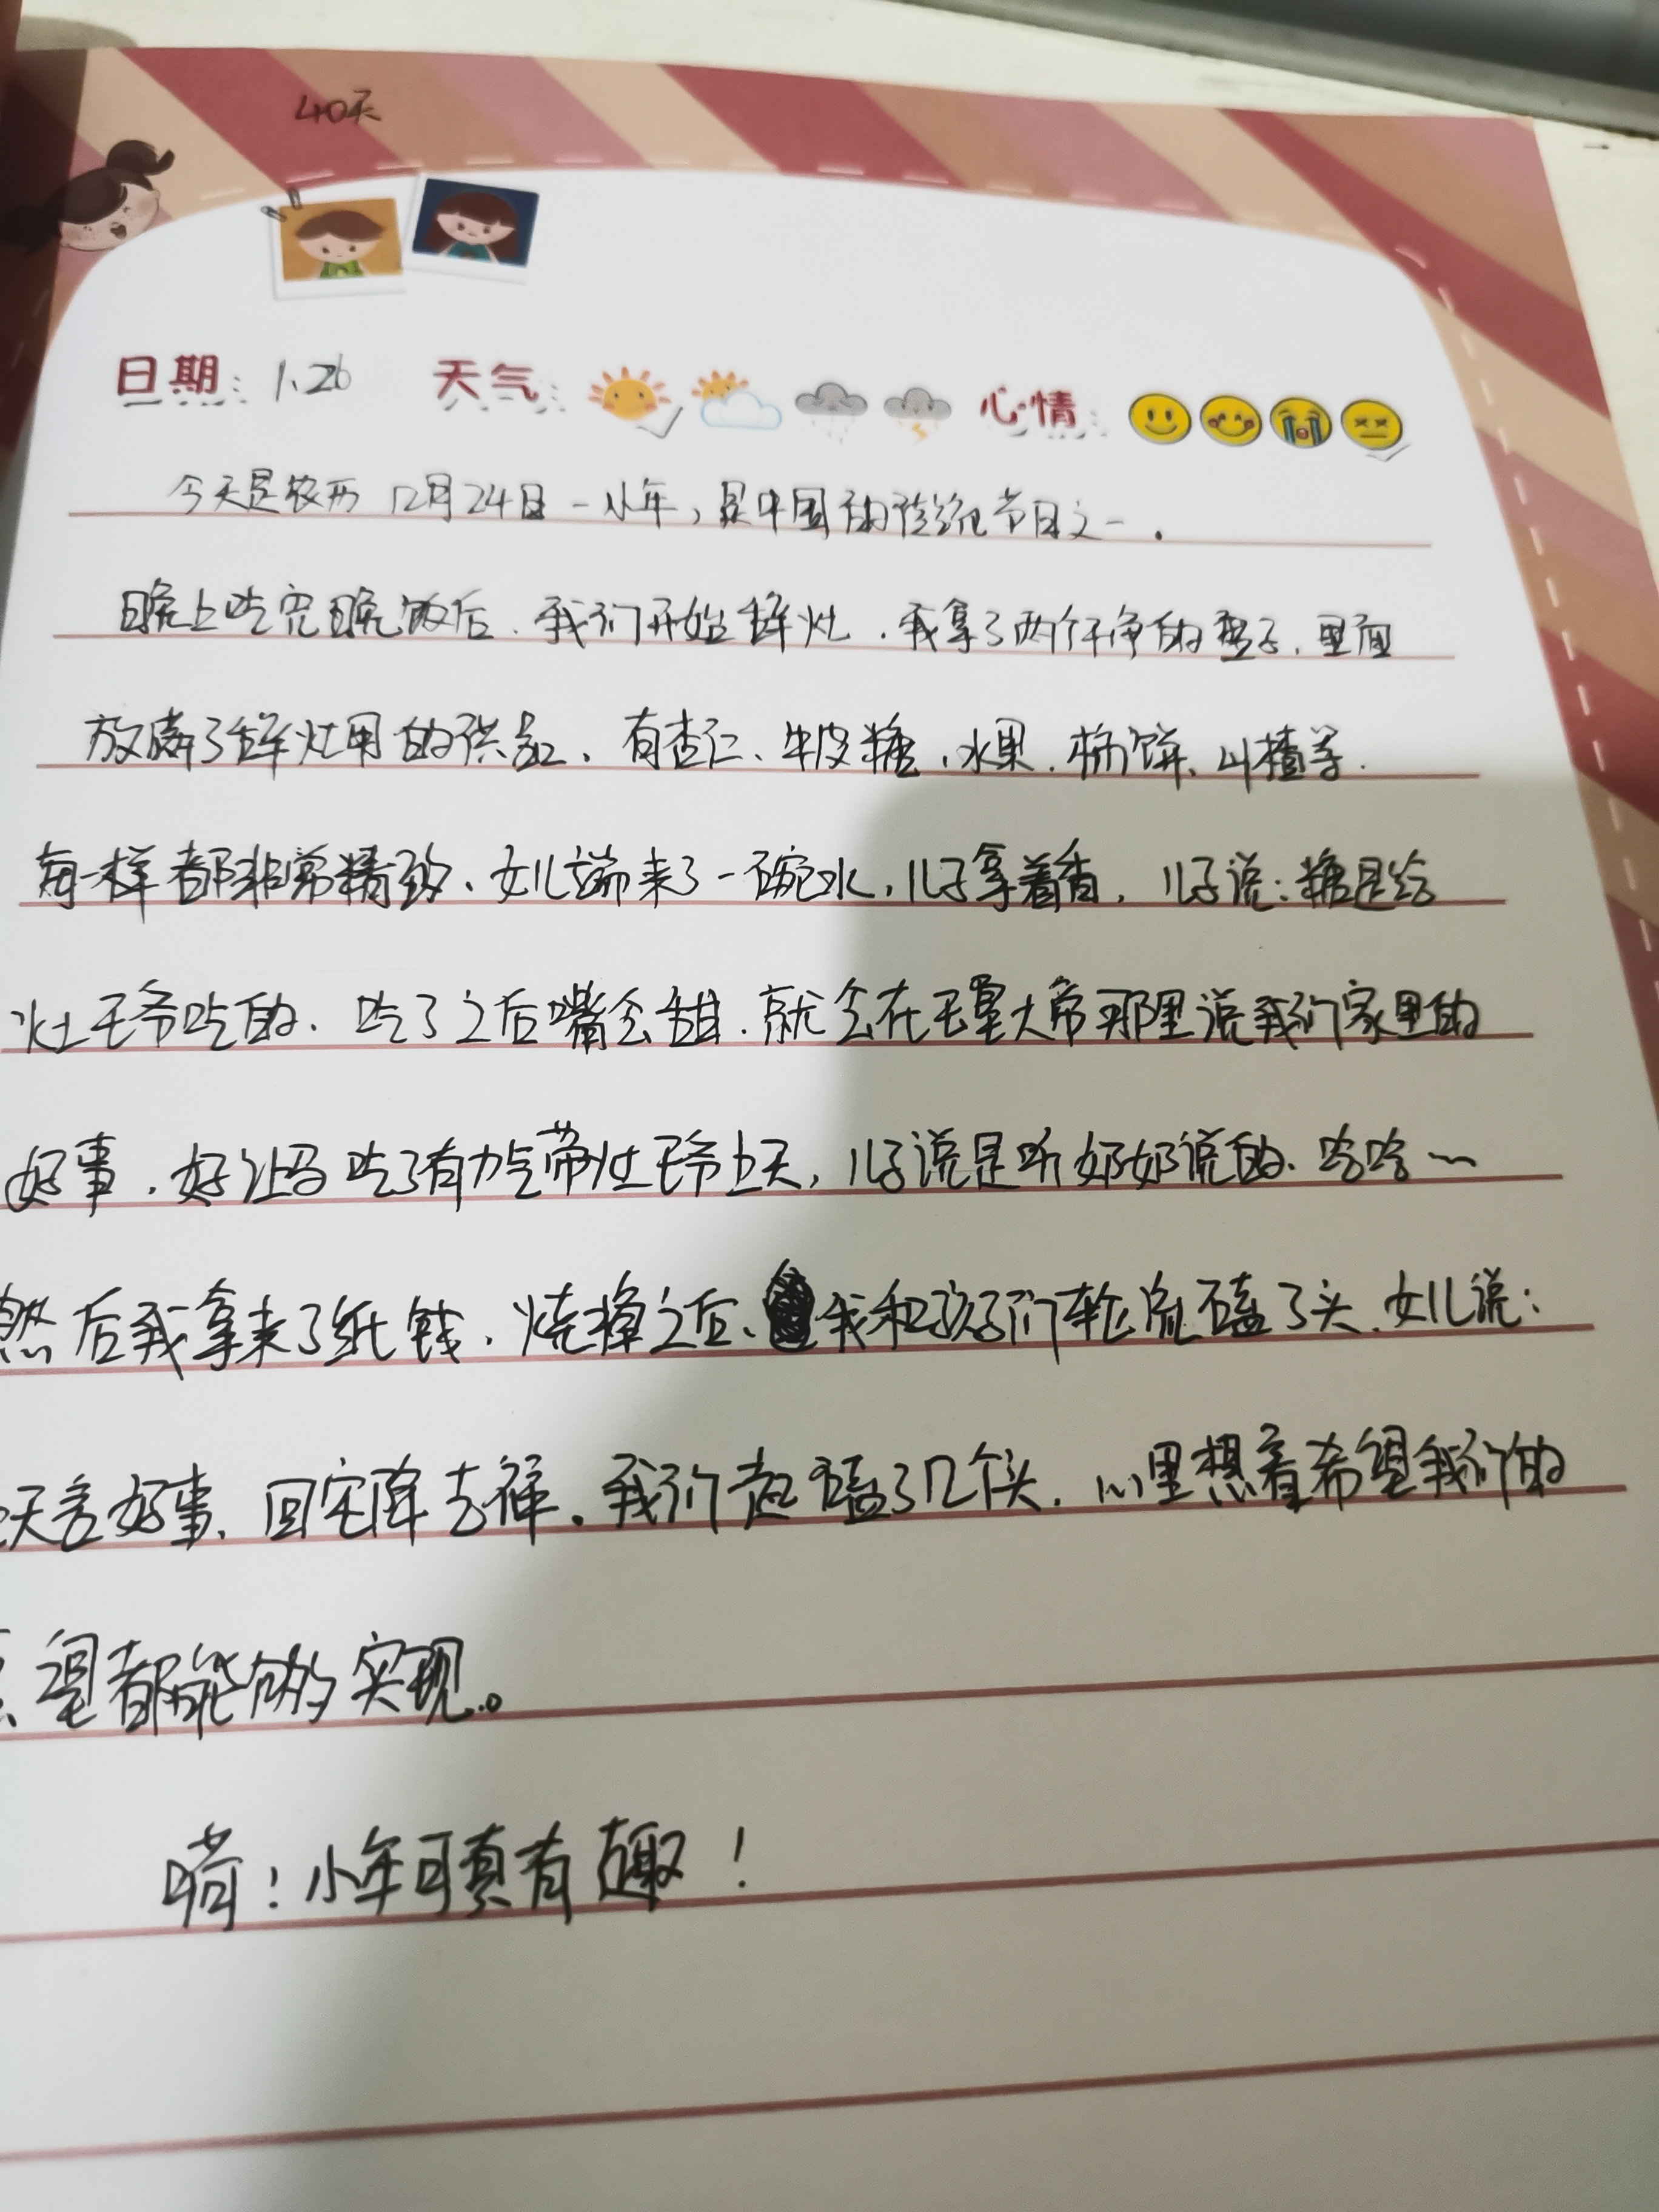 40天
日期: 1.26 天气: 心情:
今天是农历12月24日-小年,是中国的传统节日之一.
晚上吃完晚饭后.我们开始辞灶.我拿了两个干净的盘子.里面
放满了辞灶用的供品.有杏仁、牛皮糖、水果.柿饼、山楂等.
每一样都非常精致、女儿端来了一碗水,儿子拿着香,儿子说:糖是给
灶王爷吃的.吃了之后嘴会甜.就会在玉皇大帝那里说我们家里的
好事.好让马吃了有力气带灶王爷上天,儿子说是听奶奶说的.哈哈~
然后我拿来了纸钱.烧掉之后、我和孩子们轮流磕了头.女儿说:
天言好事.回宅降吉祥.我们一起磕了几个头.心里想着希望我们的
望都能够实现。
嗬!小年可真有趣!